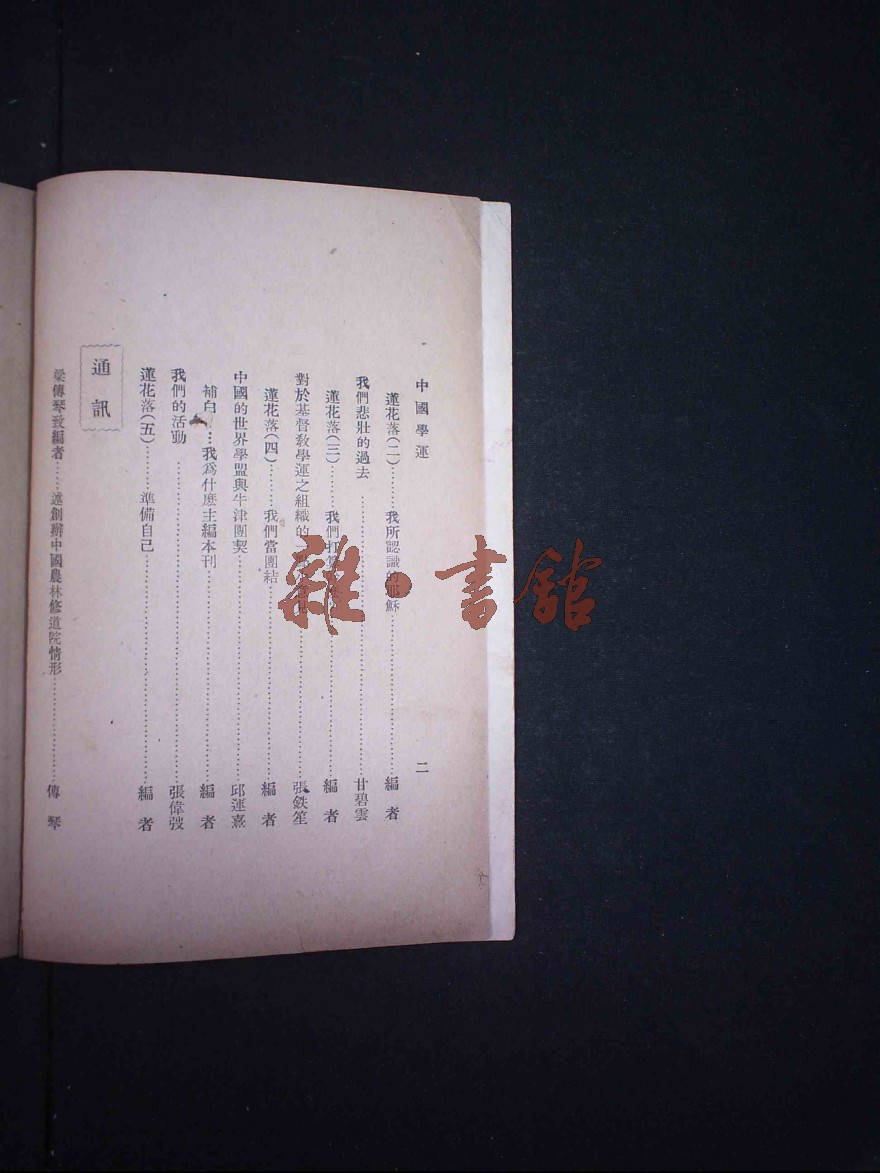 中國學運 二
蓮花落(二)………我所認識的耶穌………編者
我們悲壯的過去………甘碧雲
蓮花落(三)………我們打………編者
對於基督教學運之組織的一………張鉄笙
蓮花落(四)………我們當團結………編者
中國的世界學盟與牛津團契………邱運熹
補白………我爲什麽主編本刊………編者
我們的活動………張偉弢
蓮花落(五)………準備自己………編者
通訊
梁傳琴致編者………述創辦中國農林修道院情形………傳琴
雜·書館